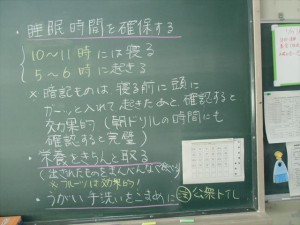 ・睡眠時間を確保する
10〜11時には寝る
5〜6時に起きる
×暗記ものは寝る前に頭に
ガーッと入れて起きたあと確認すると
効果的(朝ドリルの時間にも
確認すると完璧)
・栄養をきちんと取る
(出されたものをまんべんなく食べる)
×フルーツは効果的!
・うがい手洗いをこまめに 公衆トイレ